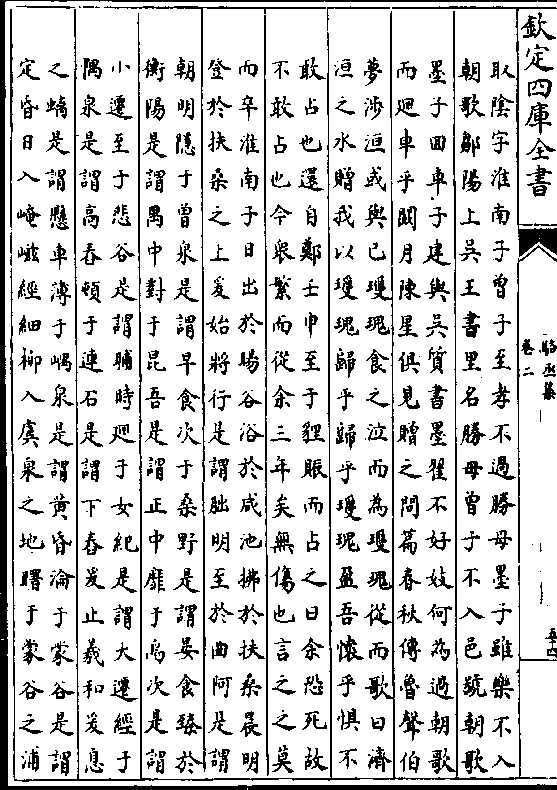 欽定四庫全書
駱丞集
卷二
五十四
取陰字淮南子曾子至孝不過勝母墨子雖樂不入
朝歌鄒陽上吳王書里名勝母曾子不入邑號朝歌
墨子回車子建與吳質書墨翟不好妓何為過朝歌
而廻車乎閼月陳星俱見贈之問篇春秋傳魯聲伯
夢涉洹或與己瓊瑰食之泣而為瓊瑰從而歌曰濟
洹之水贈我以瓊瑰歸乎歸乎瓊瑰盈吾懷乎懼不
敢占也還自鄭壬申至于貍脤而占之曰余恐死故
不敢占也今衆繁而從余三年矣無傷也言之之莫
而卒淮南子日出於暘谷浴於咸池拂於扶桑晨明
登於扶桑之上爰始將行是謂朏明至於曲阿是謂
朝明隱于曾泉是謂早食次于桑野是謂晏食臻於
衡陽是謂禺中對于昆吾是謂正中靡于鳥次是謂
小遷至于悲谷是謂晡時廻于女紀是謂大遷經于
隅泉是謂高舂頓于連石是謂下舂爰止羲和爰息
之螭是謂懸車薄于嵎泉是謂黃昏淪于蒙谷是謂
定昏日入崦嵫經細柳入虞泉之地曙于蒙谷之浦